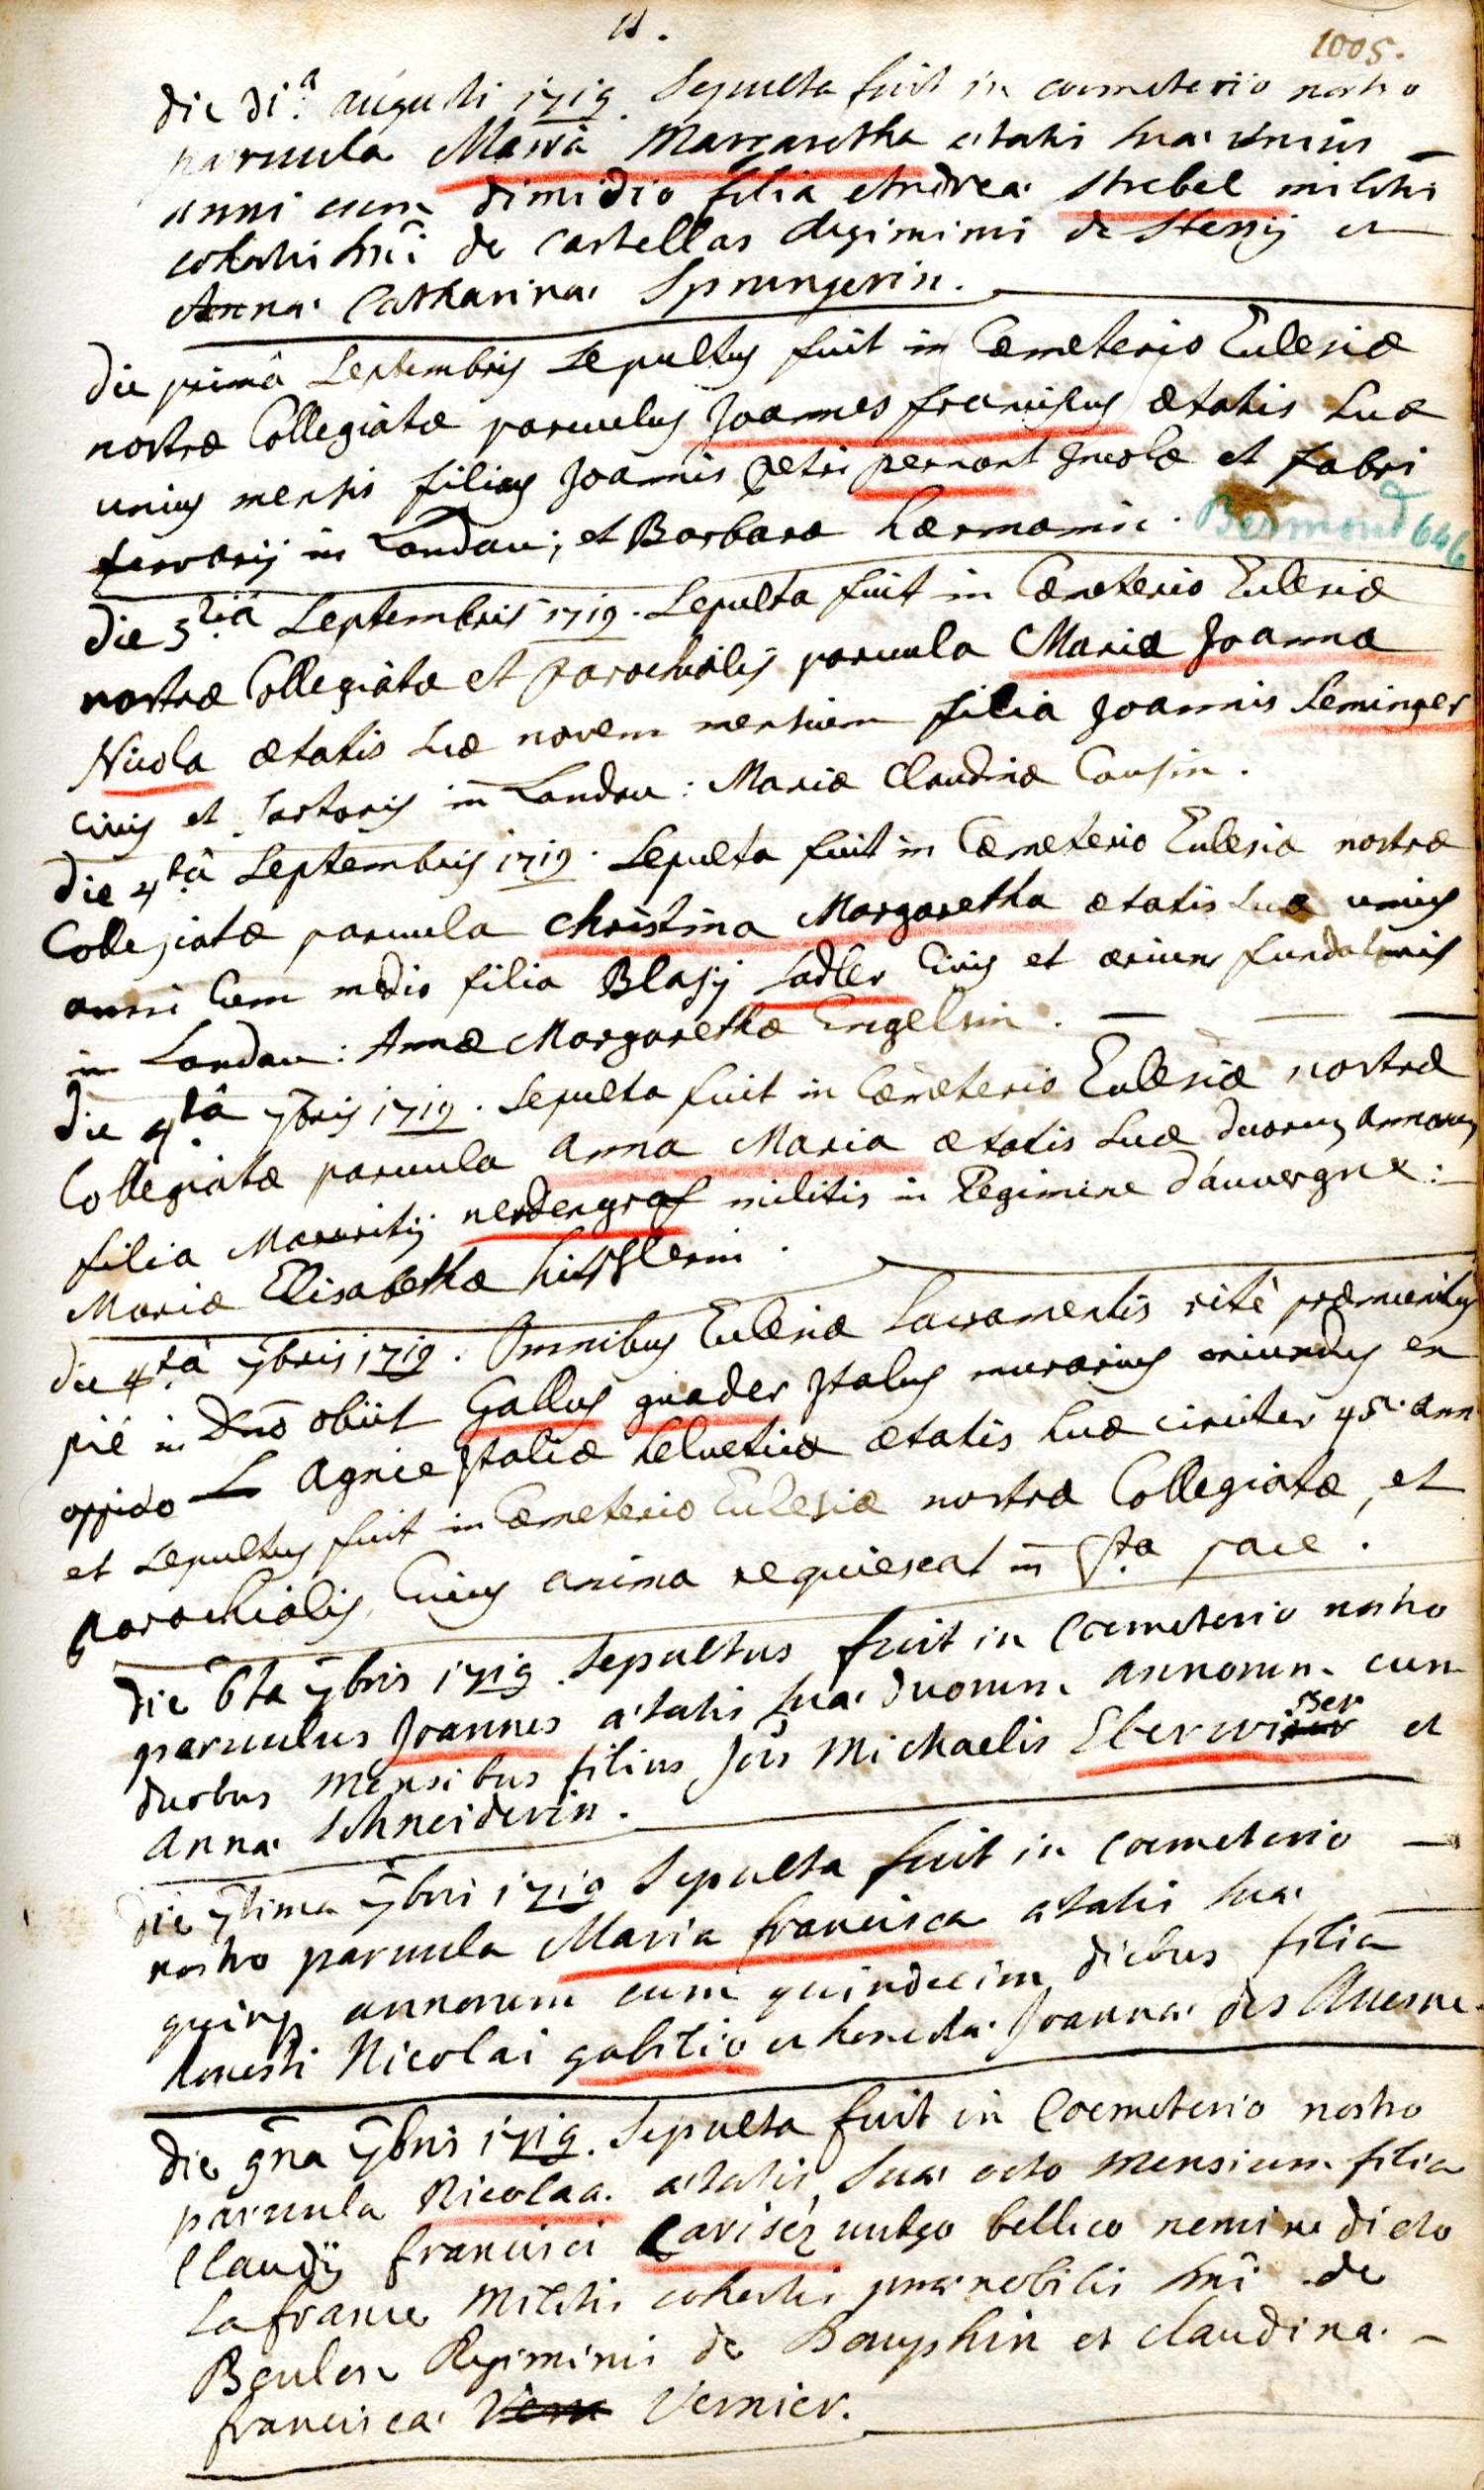 11.
1005.
die di.a augusti 1719. Sepulta fuit in coemeterio nostro
parvula Maria Margaretha ætatis suæ unius
anni cum dimidio filia Andreæ Strebel militis
cohortis de Castellas Regiminis de et
Anna Catharina Sprungerin.
die primâ Septembris Sepultus fuit in Cæmeterio Ecclesiæ
nostræ Collegiatæ parvulus Joannes franciscus ætatis suæ
unius mensis filius Joannis petri pernont Incolæ et fabri
ferrarij in Landau; et Barbara Hærmanin.
Bermond 646
die 3tiâ Septembris 1719. Sepulta fuit in Cæmeterio Ecclesiæ
nostræ Collegiatæ et parochialis parvula Maria Joanna
Nicola ætatis suæ novem mensium filia Joannis Seminger
civis et Sartoris in Landau: Mariæ Claudinæ Cousin.
die 4tâ Septembris 1719. Sepulta fuit in Cæmeterio Ecclesiæ nostræ
Collegiatæ parvula Christina Margaretha ætatis suæ unius
anni cum medio filia Blasij Sadler Civis et fundatoris
in Landau: Annæ Margarethæ Engelsin.
die 4tâ 7bris 1719. Sepulta fuit in Cæmeterio Ecclesiæ nostræ
Collegiatæ parvula Anna Maria ætatis suæ duorum annorum
filia Mauritij nerdengraf militis in Regimine d'auvergne:
Mariæ Elisabethæ
die 4tâ 7bris 1719. Omnibus Ecclesiæ Sacramentis ritè præmunitus
piè in Dno obiit Gallus gnader Italus murarius oriundus en
oppido Agnie Italiæ helveticæ ætatis suæ circiter 45 ann
et Sepultus fuit in Cæmeterio Ecclesiæ nostræ Collegiatæ, et
parochialis, Cuius anima requiescat in Sta pace.
die 6ta 7bris 1719. Sepultus fuit in Coemeterio nostro
parvulus Joannes ætatis suæ duorum annorum cum
duobus mensibus filius Jois Michaelis Eberwiser et
Anna Schneiderin.
die 7tima 7bri 1719 Sepulta fuit in Coemeterio
nostro parvula Maria francisca ætatis suæ
quinq annorum cum quindecim diebus filia
honesti Nicolai gabitio et honesta Joanna des Auesne.
die 9na 7bris 1719. Sepulta fuit in Coemeterio nostro
parvula Nicolaa ætatis suæ octo mensium filia
Claudij francisci Carisez vulgo bellico nomine dicto
La france Militis cohortis prænobilis de
Beulen Regiminis de Dauphin et Claudina
francisca Vernier.